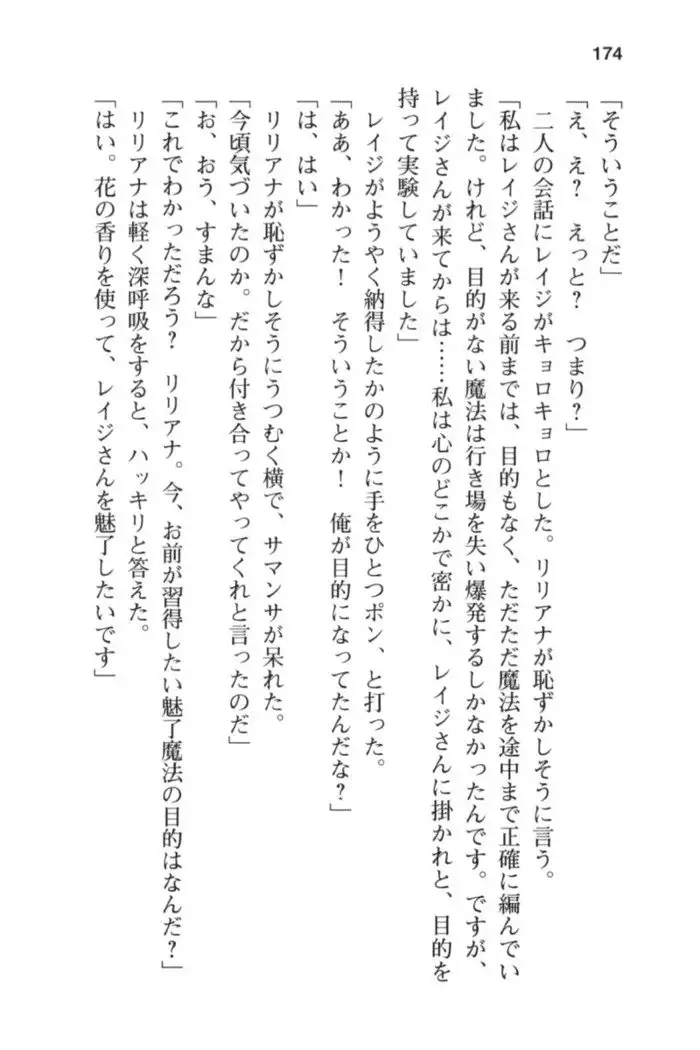 174
「そういうことだ」
「え、え？　えっと？　つまり？」
二人の会話にレイジがキョロキョロとした。リリアナが恥ずかしそうに言う。
「私はレイジさんが来る前までは、目的もなく、ただただ魔法を途中まで正確に編んでい
ました。けれど、目的がない魔法は行き場を失い爆発するしかなかったんです。ですが、
レイジさんが来てからは……私は心のどこかで密かに、レイジさんに掛かれと、目的を
持って実験していました」
レイジがようやく納得したかのように手をひとつポン、と打った。
「ああ、わかった！　そういうことか！　俺が目的になってたんだな？」
「は、はい」
リリアナが恥ずかしそうにうつむく横で、サマンサが呆れた。
「今頃気づいたのか。だから付き合ってやってくれと言ったのだ」
「お、おう、すまんな」
「これでわかっただろう？　リリアナ。今、お前が習得したい魅了魔法の目的はなんだ？」
リリアナは軽く深呼吸をすると、ハッキリと答えた。
「はい。花の香りを使って、レイジさんを魅了したいです」